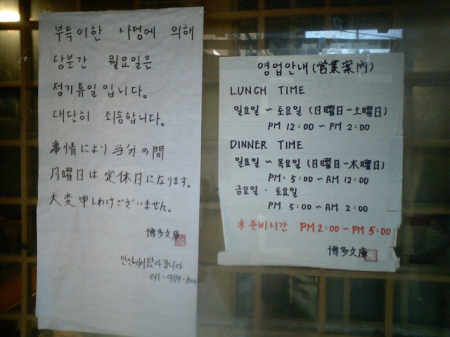 부득이한 사정에 의해
당분간 월요일은
정기휴일입니다.
대단히 죄송합니다.
事情により当分の間
月曜日は定休日になります。
大変申しわけございません。
博多文庫
영업안내(営業案内)
LUNCH TIME
일요일 ~ 토요일 (日曜日~土曜日)
PM 12:00 ~ PM 2:00
DINNER TIME
일요일 ~ 목요일 (日曜日~木曜日)
PM. 5:00 ~ AM 12:00
금요일 · 토요일
PM 5:00 ~ AM 2:00
* 준비시간 PM 2:00 ~ PM 5:00
博多文庫